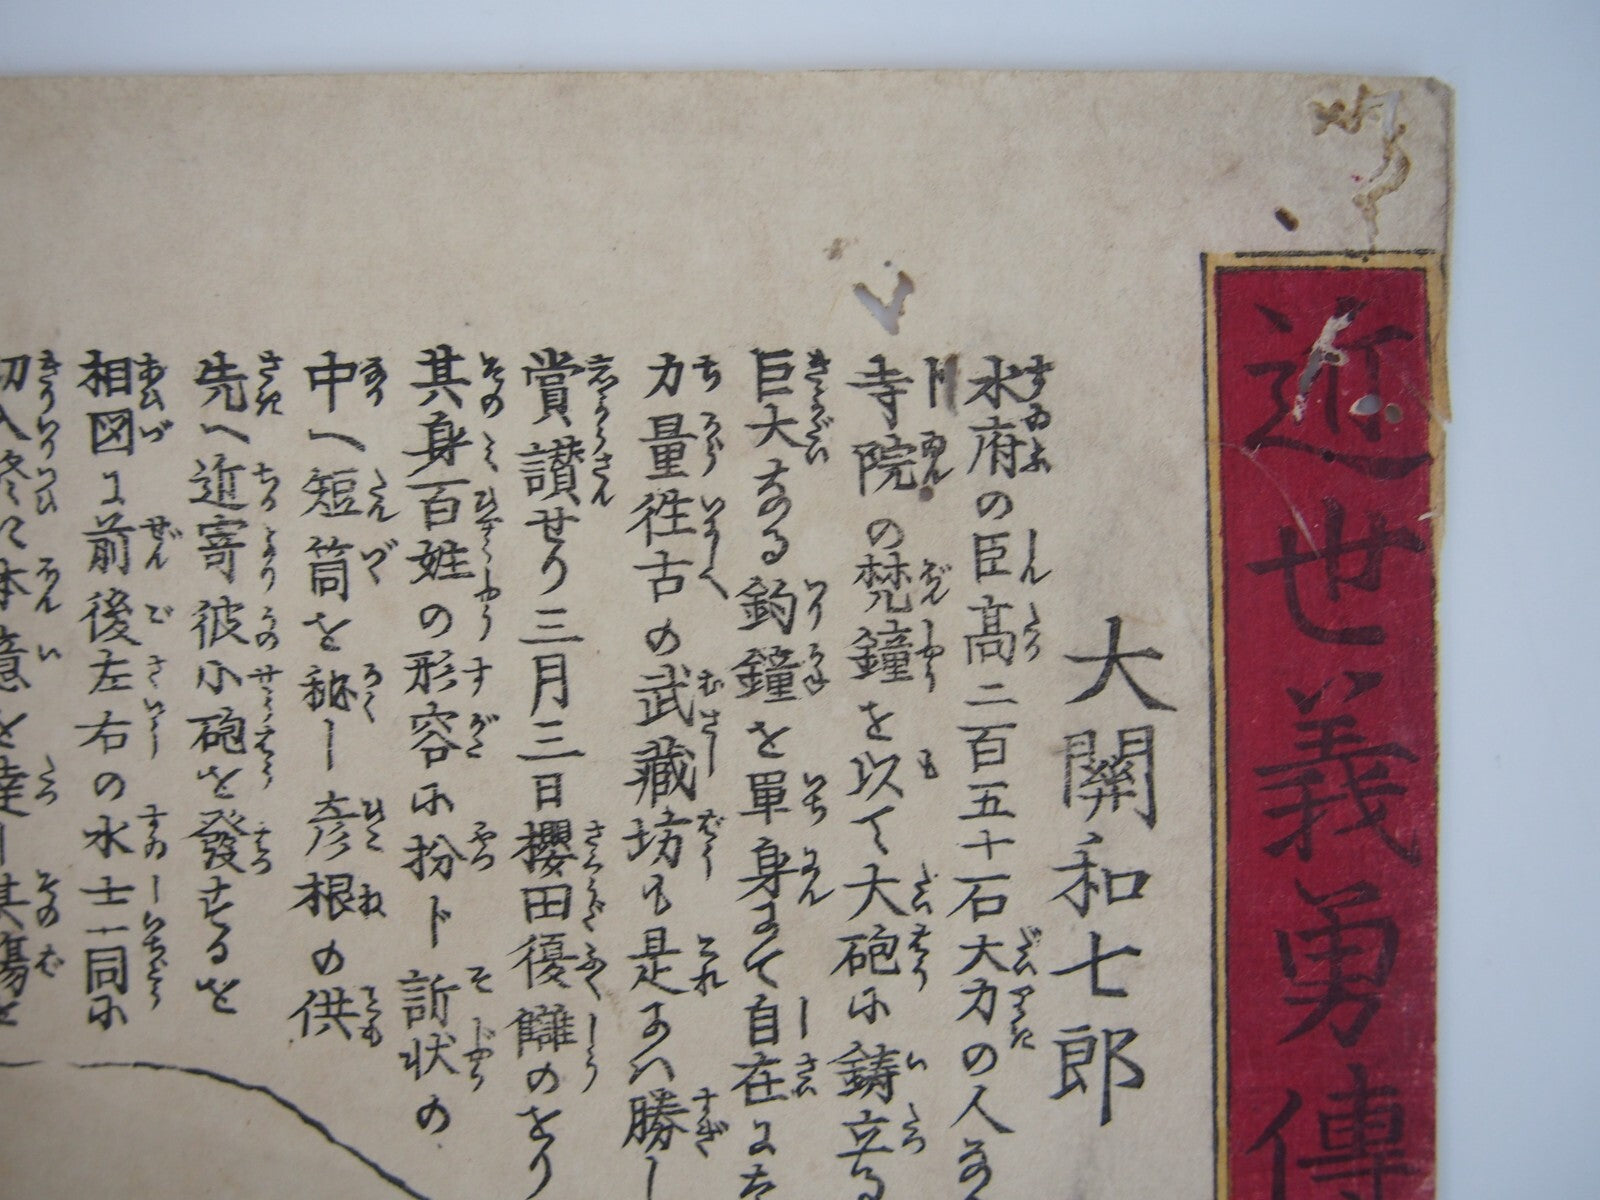 近世義勇傳
大關和七郎
水府の臣高二百五十石大力の人な
寺院の梵鐘を以て大砲に鋳立る
巨大なる釣鐘を単身にて自在に
力量徃古の武藏坊も是には勝し
賞讃せり三月三日櫻田復讎のをり
其身百姓の形容に扮ド訴状の
中へ短筒を秘し彦根の供
先へ近寄彼小砲を發するを
相図に前後左右の水士一同に
切入終に本意を達し其傷を